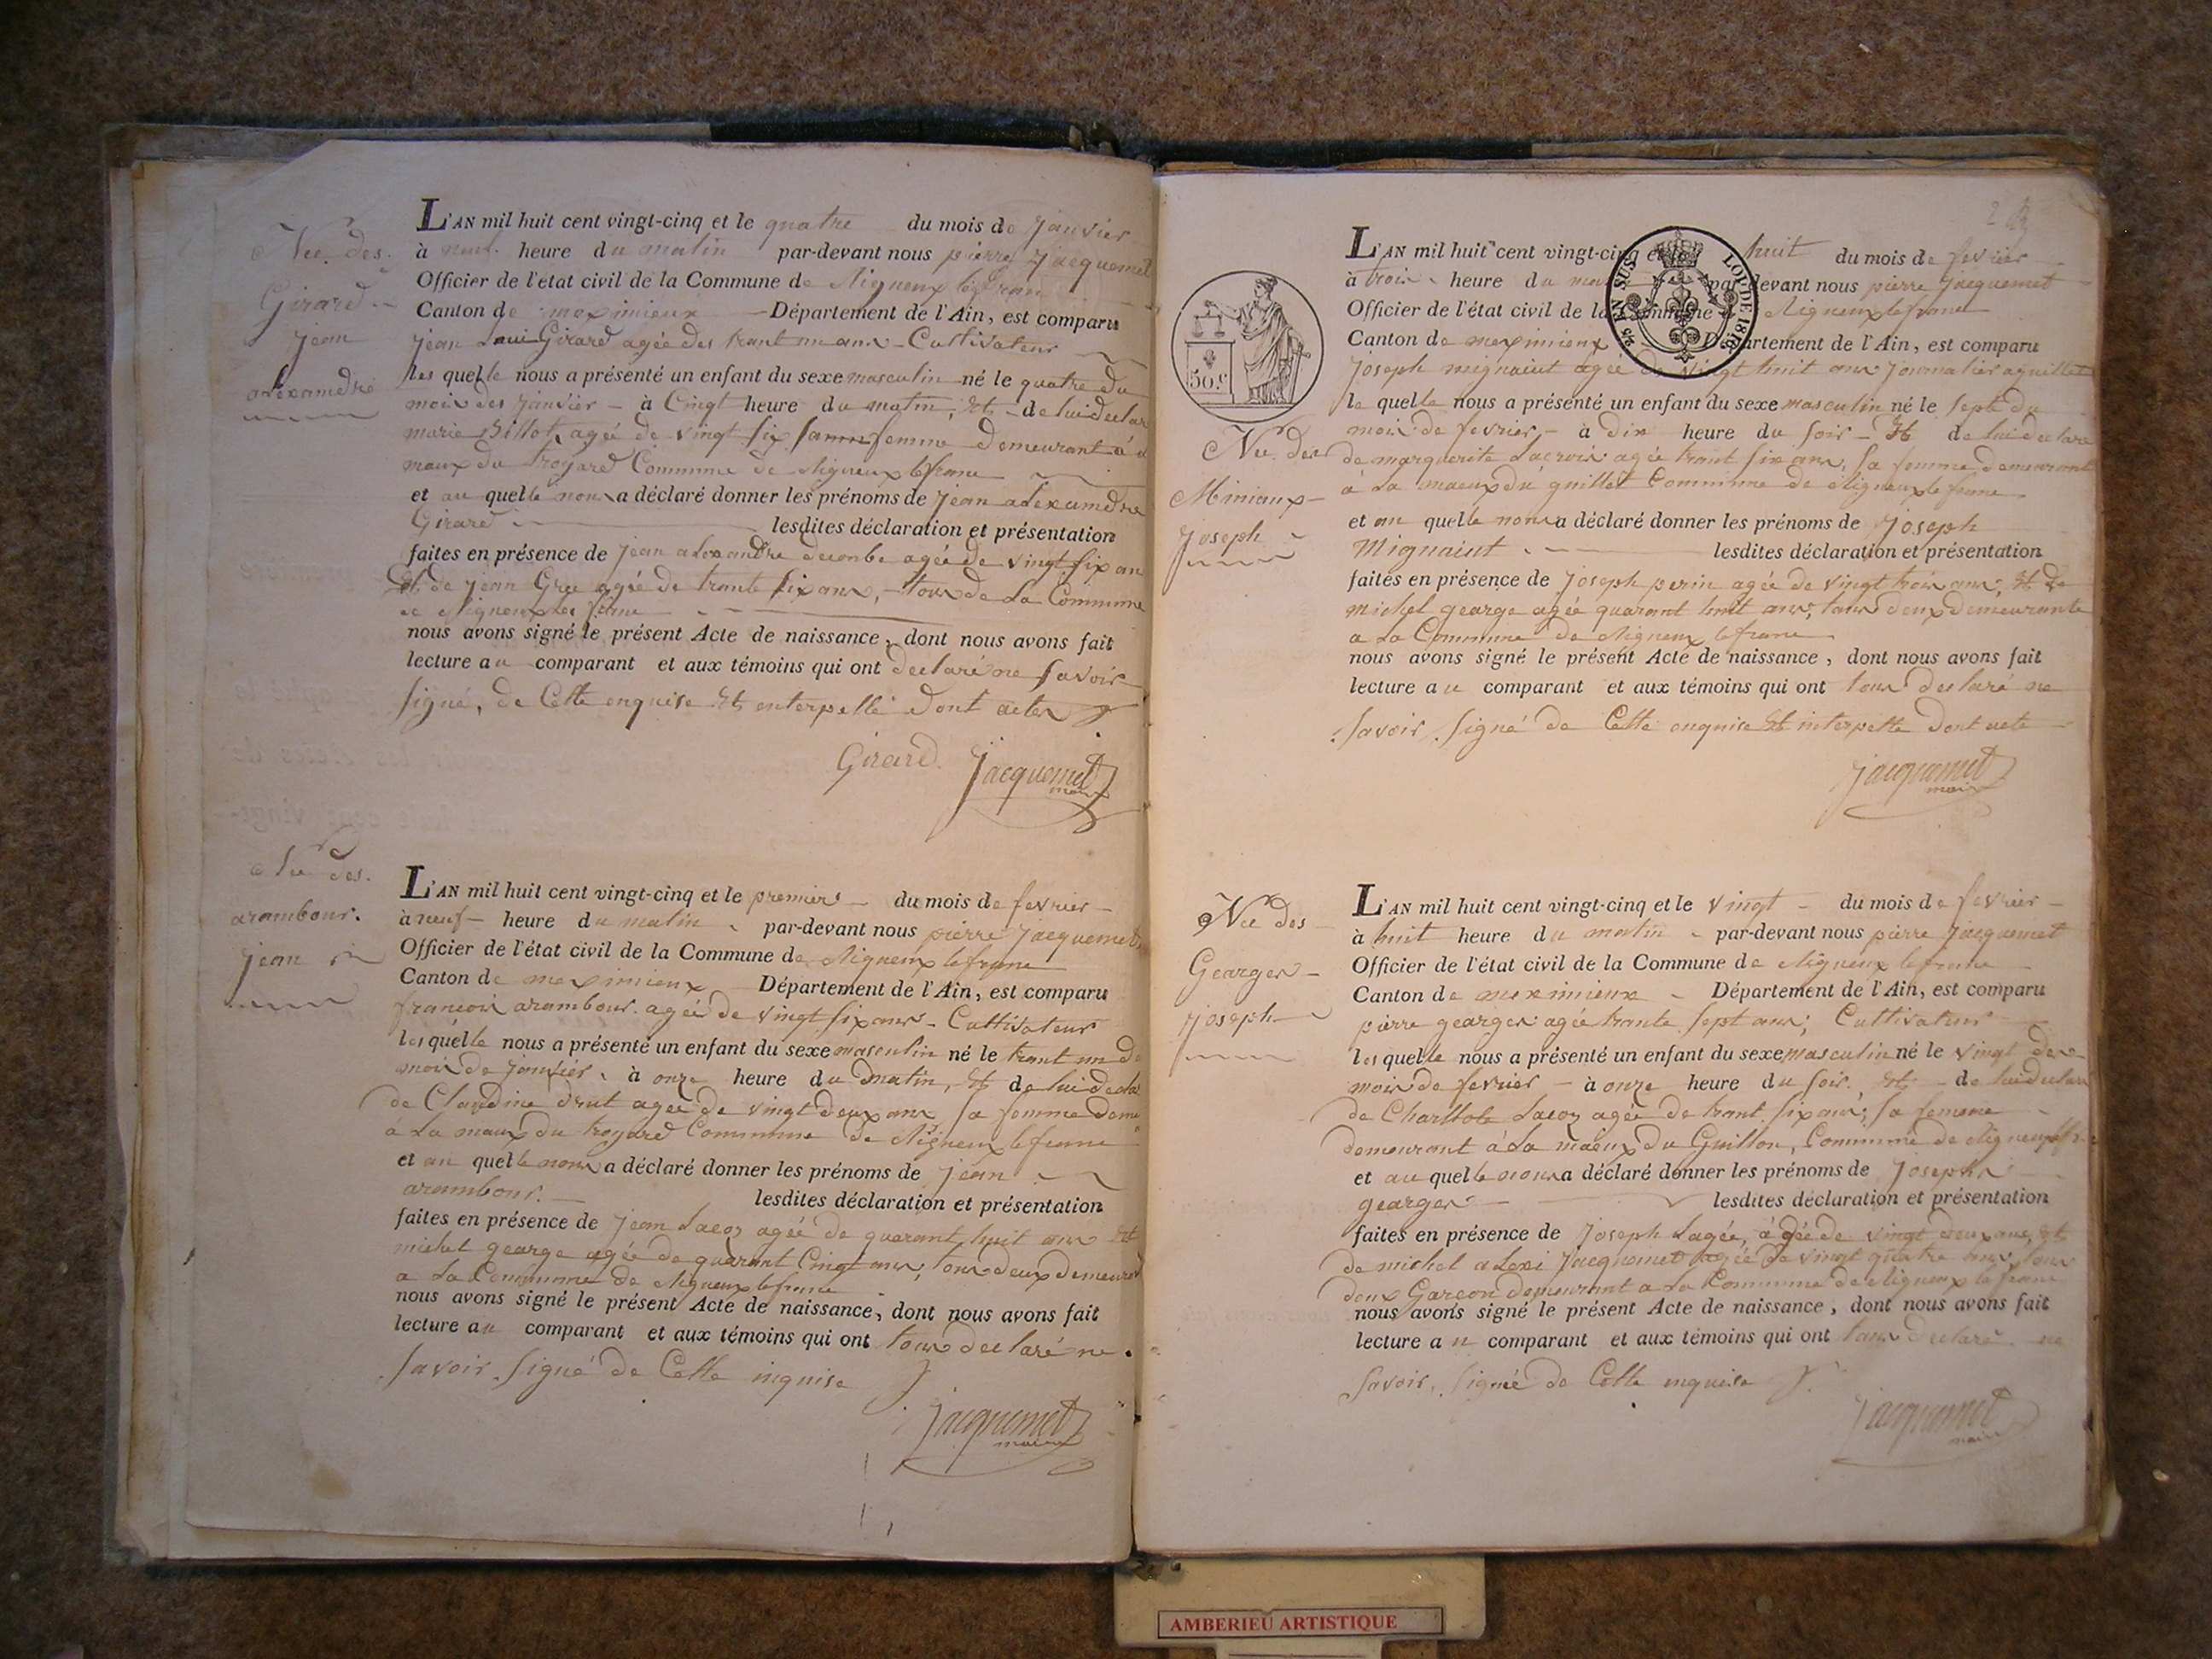 Née des
Girard
jean
alexamdre
L'AN mil huit cent vingt-cinq et le quatre du mois de janvier
à neuf heure du matin par-devant nous pierre jacquemet
Officier de l'état civil de la Commune de Rigneux lefranc
Canton de meximieux Département de l'Ain, est comparu
jean Loui Girard agée des trant un ans Cultivateur
les quelle nous a présenté un enfant du sexe masculin né le quatre du
mois des janvier à Cingt heure du matin, et de lui declar
marie Billot, agée de vingt six femme demeurant à
maux du troyard Commune de Rigneux lefranc
et au quelle nous a déclaré donner les prénoms de jean alexamdre
Girard lesdites déclaration et présentation
faites en présence de jean alexandre agée de vingt six an
et de jean agée de trante six ans, tous de La Commune
de Rigneux
nous avons signé le présent Acte de naissance, dont nous avons fait
lecture au comparant et aux témoins qui ont declaré ne savoir
signé, de Cette enquise et enterpellé dont acte
Girard jacquemet
maire
Née des
arambour.
jean
L'AN mil huit cent vingt-cinq et le premier du mois de fevrier
à neuf heure du matin par-devant nous pierre jacquemet
Officier de l'état civil de la Commune de Rigneux lefranc
Canton de meximieux Département de l'Ain, est comparu
francois arambour agée de vingt six ans Cultivateur
les quelle nous a présenté un enfant du sexe masculin né le trant un de
mois de janvier à onze heure du matin, et de lui decla
de Claudine drut agée de vingt deux ans sa femme deme
à La maux du troyard Commune de Rigneux lefranc
et au quelle nous a déclaré donner les prénoms de jean
arambour. lesdites déclaration et présentation
faites en présence de jean Lacoz agée de quarant huit ans et
michel gearge agée de quarant Cingt ans, tous deux demeurant
a La Commune de Rigneux lefranc
nous avons signé le présent Acte de naissance, dont nous avons fait
lecture au comparant et aux témoins qui ont tous declaré ne
savoir signé de Cette inquise
jacquemet
maire
2
50.c
25 EN SUS LOI DE 1816
Née des
Miniaux
joseph
L'AN mil huit cent vingt-cinq et huit du mois de fevrier
à trois heure du par-devant nous pierre jacquemet
Officier de l'état civil de la Commune de Rigneux lefranc
Canton de meximieux Département de l'Ain, est comparu
joseph mignaint agée de vingt huit ans journalier
le quelle nous a présenté un enfant du sexe masculin né le sept du
mois de fevrier à dix heure du soir et de lui declare
de marguerite Lacroix agée trant six ans, sa femme demeurant
à La maux du guillet Commune de Rigneux lefranc
et au quelle nous a déclaré donner les prénoms de joseph
Mignaint lesdites déclaration et présentation
faites en présence de joseph perin agée de vingt trois ans, et de
michel gearge agée quarant huit ans, tous deux demeurante
a La Commune de Rigneux lefranc
nous avons signé le présent Acte de naissance, dont nous avons fait
lecture au comparant et aux témoins qui ont tous declaré ne
savoir signé de Cette enquise et interpelle dont acte
jacquemet
maire
Née des
Gearges
joseph
L'AN mil huit cent vingt-cinq et le vingt du mois de fevrier
à huit heure du matin par-devant nous pierre jacquemet
Officier de l'état civil de la Commune de Rigneux lefranc
Canton de meximieux Département de l'Ain, est comparu
pierre gearges agée trante sept ans; Cultivateur
les quelle nous a présenté un enfant du sexe masculin né le vingt de
mois de fevrier à onze heure du soir et de lui declar
de Charllote Lacoz agée de trant six ans; sa femme
demeurant à La maux du Guillon, Commune de Rigneux
et au quelle nous a déclaré donner les prénoms de joseph
gearges lesdites déclaration et présentation
faites en présence de joseph Lagée, agée de vingt deux ans, et
de michel alexi jacquemet agée de vingt quatre ans tous
deux Garcon demeurant a La Commune de Rigneux lefranc
nous avons signé le présent Acte de naissance, dont nous avons fait
lecture au comparant et aux témoins qui ont tous declaré ne
savoir, signé de Cette enquise
jacquemet
maire
AMBERIEU ARTISTIQUE